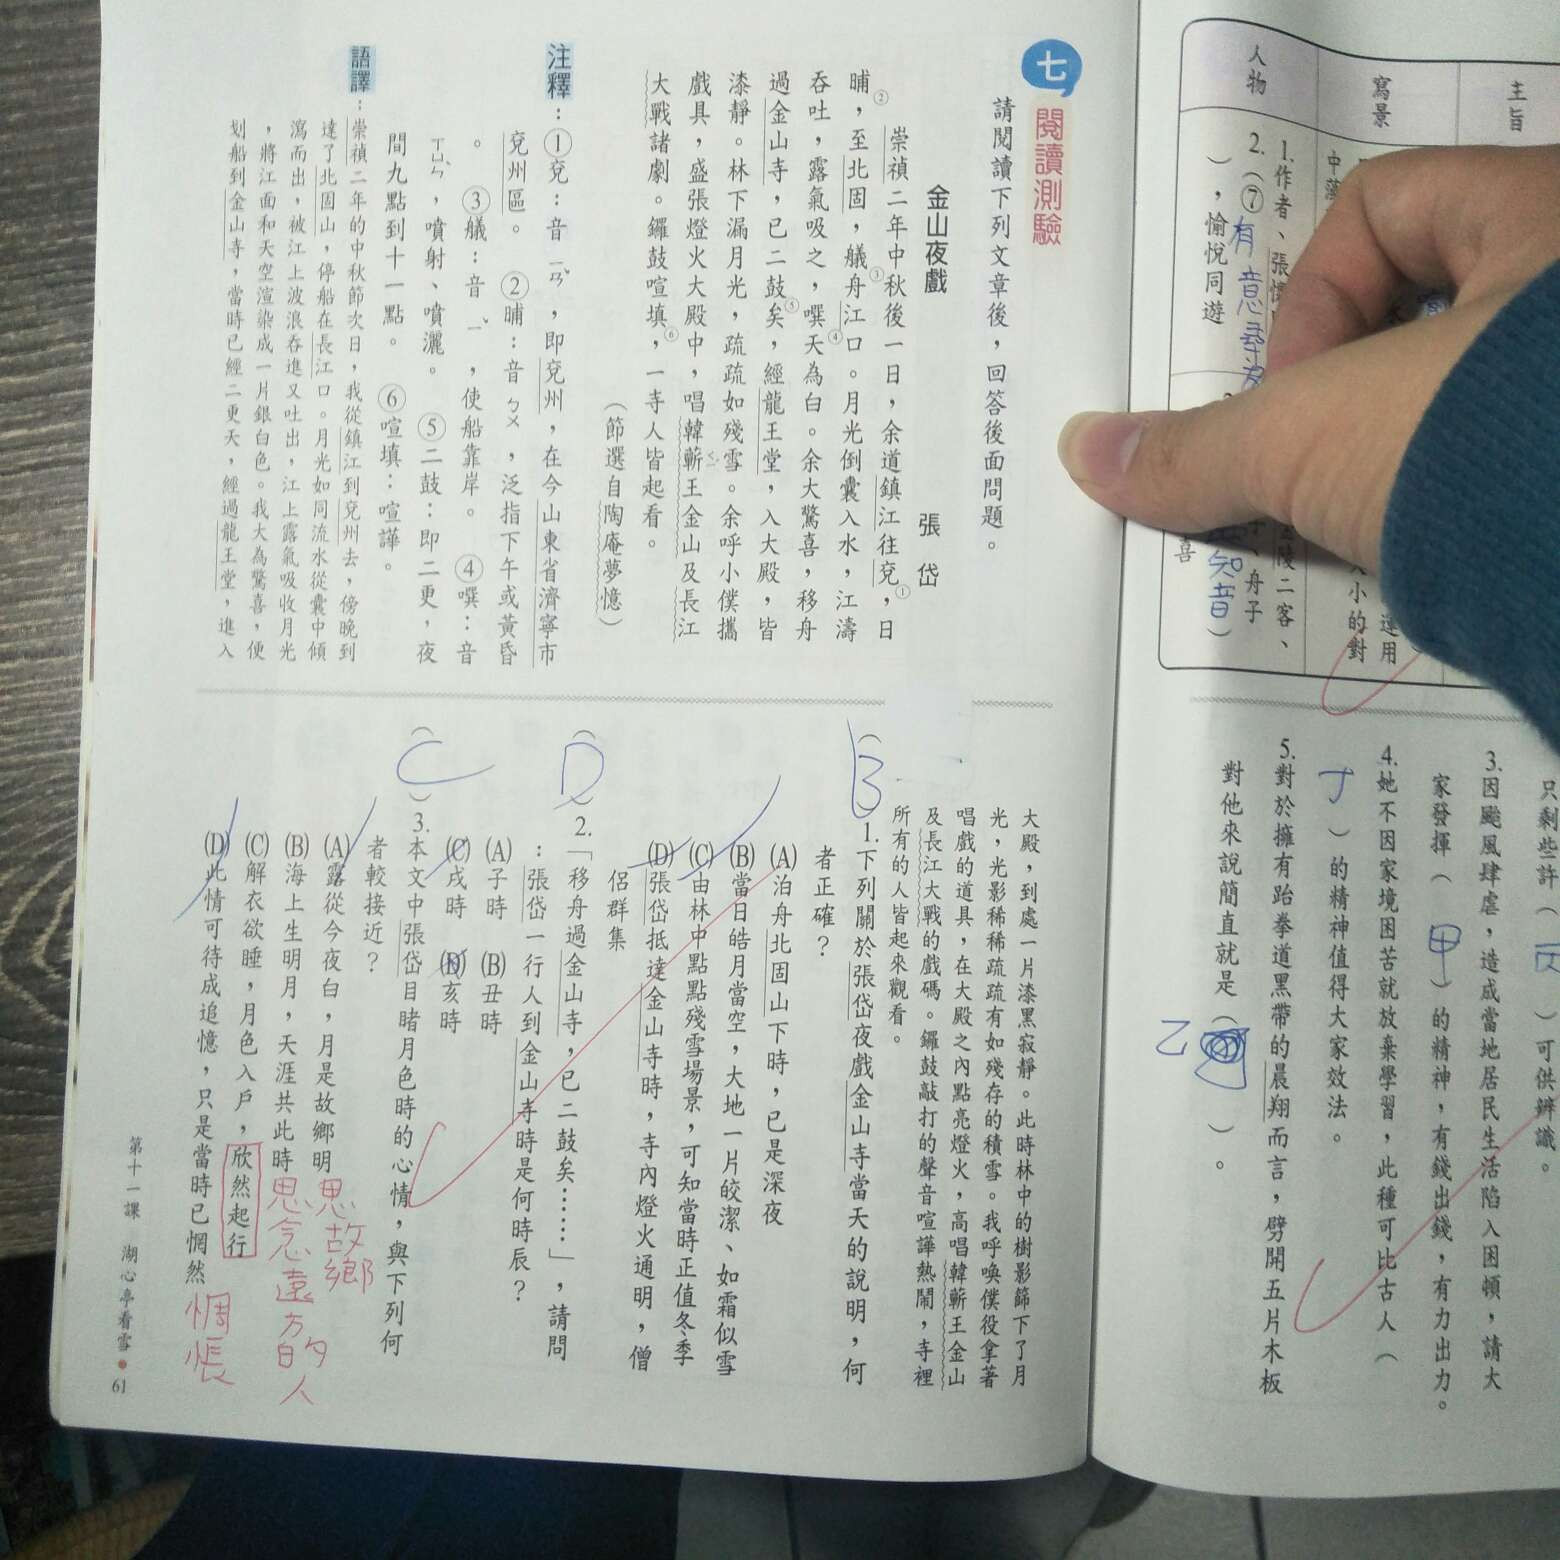 主旨
寫景
人物
1.作者、張懷
2.(⑦有意尋
)，愉悅同遊
金陵二客、
子、舟子
知音)
喜
運用
大小的對
只剩些許(
)可供辨識。
3.因颱風肆虐，造成當地居民生活陷入困頓，請大
家發揮(甲)的精神，有錢出錢，有力出力。
4.她不因家境困苦就放棄學習，此種可比古人(
丁)的精神值得大家效法。
5.對於擁有跆拳道黑帶的晨翔而言，劈開五片木板
對他來說簡直就是(乙)。
七 閱讀測驗
請閱讀下列文章後，回答後面問題。
金山夜戲 張岱
崇禎二年中秋後一日，余道鎮江往兗①，日
晡②，至北固，艤③舟江口。月光倒囊入水，江濤
吞吐，露氣吸之，噀④天為白。余大驚喜，移舟
過金山寺，已二鼓⑤矣，經龍王堂，入大殿，皆
漆靜。林下漏月光，疏疏如殘雪。余呼小僕攜
戲具，盛張燈火大殿中，唱韓蘄王金山及長江
大戰諸劇。鑼鼓喧填⑥，一寺人皆起看。
(節選自陶庵夢憶)
注釋：①兗：音ㄧㄢˇ，即兗州，在今山東省濟寧市
兗州區。 ②晡：音ㄅㄨ，泛指下午或黃昏
。 ③艤：音ㄧˇ，使船靠岸。 ④噀：音
ㄒㄩㄣˋ，噴射、噴灑。 ⑤二鼓：即二更，夜
間九點到十一點。 ⑥喧填：喧譁。
語譯：崇禎二年的中秋節次日，我從鎮江到兗州去，傍晚到
達了北固山，停船在長江口。月光如同流水從囊中傾
瀉而出，被江上波浪吞進又吐出，江上露氣吸收月光
，將江面和天空渲染成一片銀白色。我大為驚喜，便
划船到金山寺，當時已經二更天，經過龍王堂，進入
大殿，到處一片漆黑寂靜。此時林中的樹影篩下了月
光，光影稀稀疏疏有如殘存的積雪。我呼喚僕役拿著
唱戲的道具，在大殿之內點亮燈火，高唱韓蘄王金山
及長江大戰的戲碼。鑼鼓敲打的聲音喧譁熱鬧，寺裡
所有的人皆起來觀看。
(B)1.下列關於張岱夜戲金山寺當天的說明，何
者正確？
(A)泊舟北固山下時，已是深夜
(B)當日皓月當空，大地一片皎潔、如霜似雪
(C)由林中點點殘雪場景，可知當時正值冬季
(D)張岱抵達金山寺時，寺內燈火通明，僧
侶群集
(D)2.「移舟過金山寺，已二鼓矣……」，請問
：張岱一行人到金山寺時是何時辰？
(A)子時 (B)丑時
(C)戌時 (D)亥時
(C)3.本文中張岱目睹月色時的心情，與下列何
者較接近？
(A)露從今夜白，月是故鄉明 思故鄉
(B)海上生明月，天涯共此時 思念遠方的人
(C)解衣欲睡，月色入戶，欣然起行
(D)此情可待成追憶，只是當時已惘然 惆悵
第十一課 湖心亭看雪 ● 61